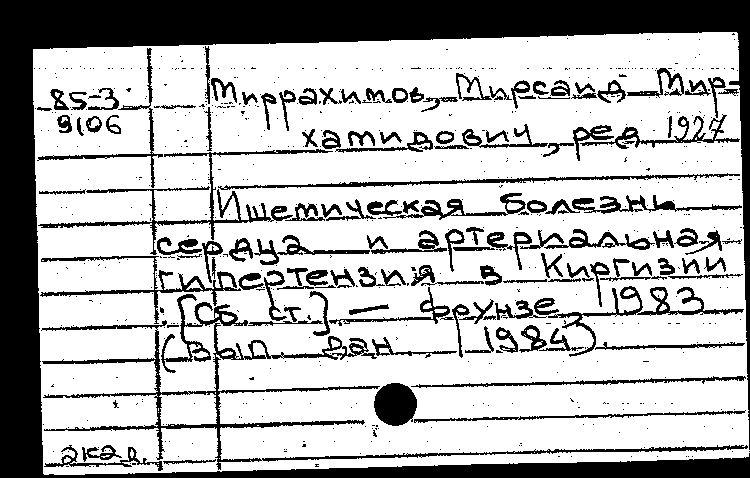 85-3
9106
Миррахимов, Мирсаид Мир-
хамидович, ред. 1927
Ишемическая болезнь
сердца и артериальная
гипертензия в Киргизии
: [Сб. ст.] — Фрунзе, 1983
(Вып. дан. 1984).